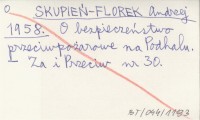 O SKUPIEŃ-FLOREK Andrzej
1958. O bezpieczeństwo
przeciwpożarowe na Podhalu.
Za i Przeciw nr 30.
BJ/044/1193